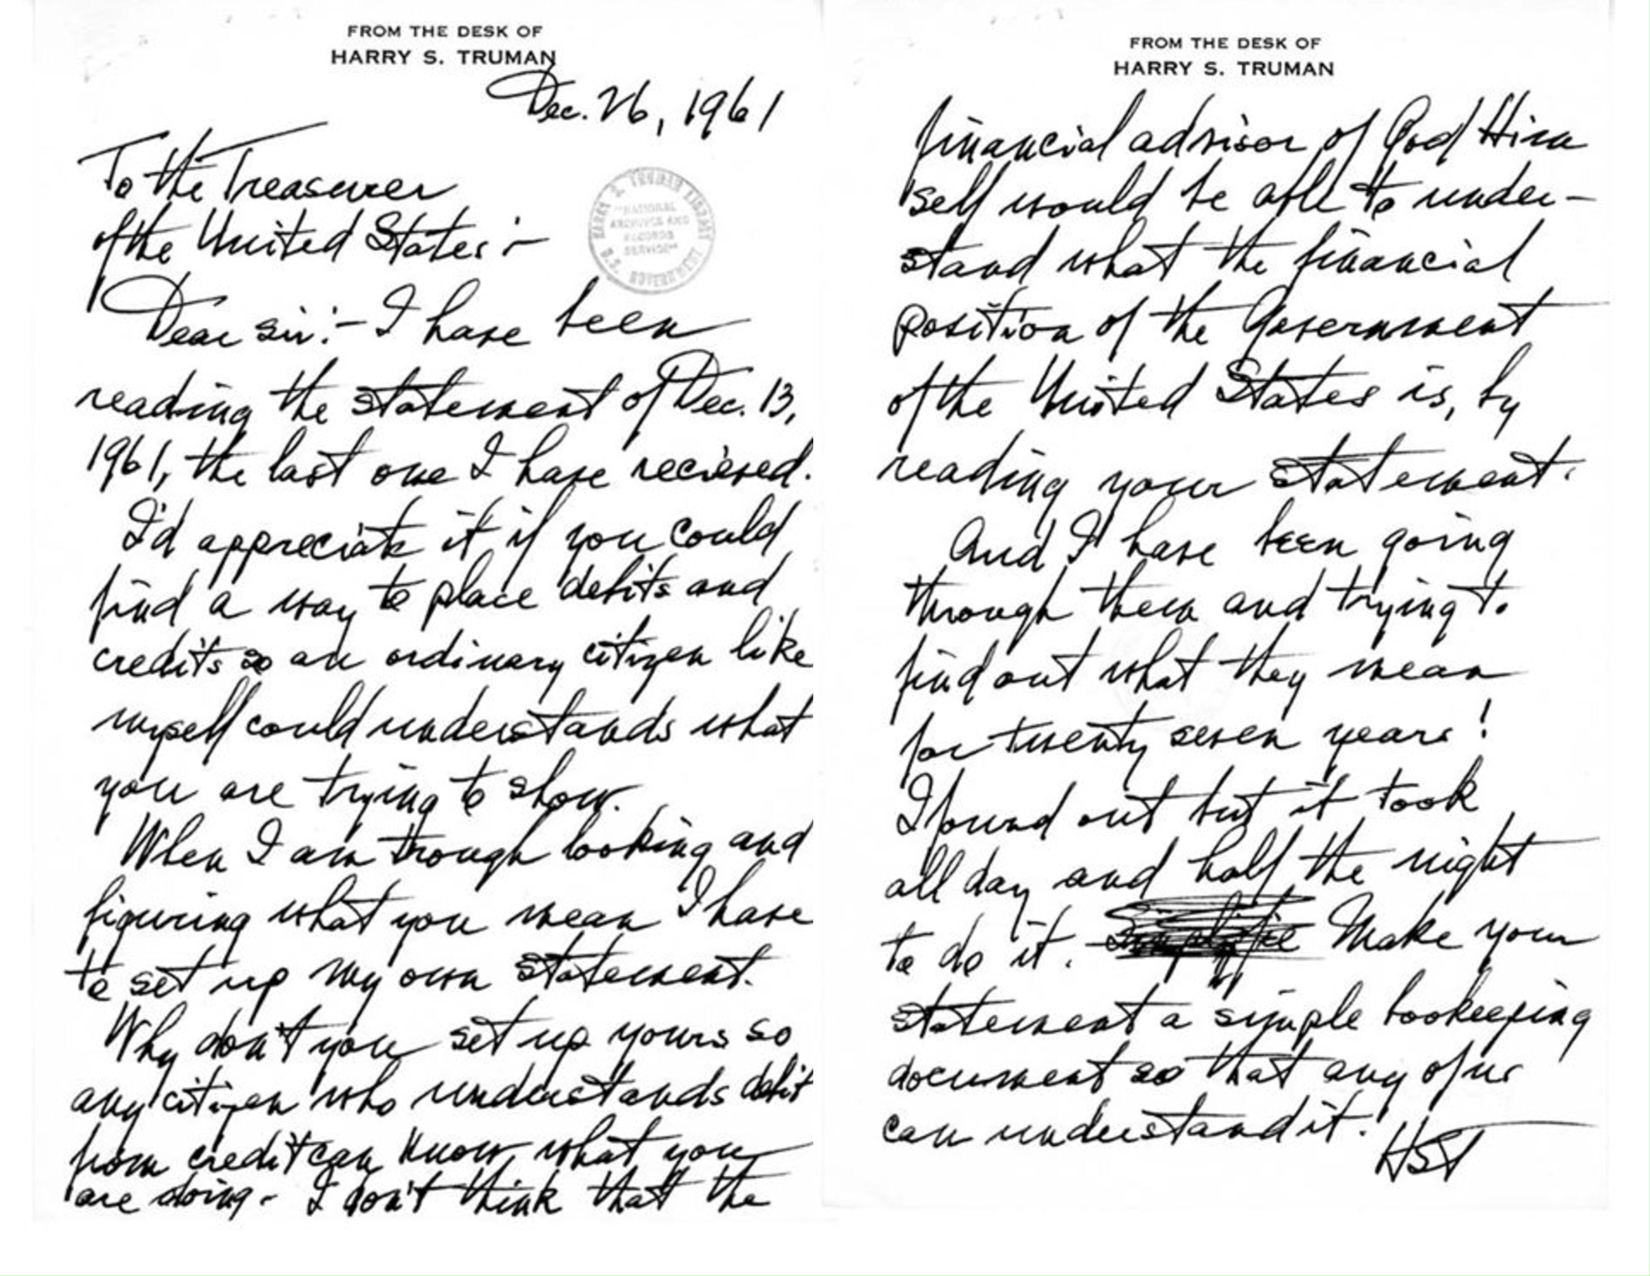 FROM THE DESK OF
HARRY S. TRUMAN
Dec. 26, 1961
To the Treasurer
of the United States:-
HARRY S. TRUMAN LIBRARY
"NATIONAL
ARCHIVES AND
RECORDS
SERVICE"
U.S. GOVERNMENT
Dear sir:- I have been
reading the statement of Dec. 13,
1961, the last one I have recieved.
I'd appreciate it if you could
find a way to place debits and
credits so an ordinary citizen like
myself could understands what
you are trying to show.
When I am trough looking and
figuring what you mean I have
to set up my own statement.
Why don't you set up yours so
any citizen who understands debit
from credit can know what you
are doing. I don't think that the
FROM THE DESK OF
HARRY S. TRUMAN
financial advisor of God Him
self would be able to under-
stand what the financial
position of the Government
of the United States is, by
reading your statement.
And I have been going
through them and trying to
find out what they mean
for twenty seven years!
I found out but it took
all day and half the night
to do it. Make your
statement a simple bookeeping
document so that any of us
can understand it.
HST